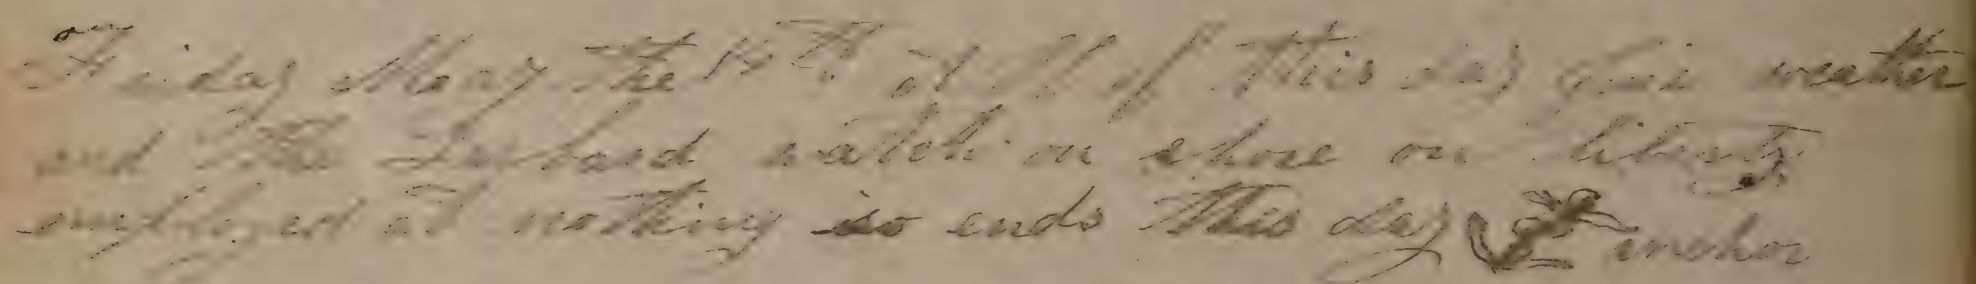 on
Friday May the 15th at all of this day fine weather
and the Larboard watch on shore on liberty
employed at nothing so ends this day anchor